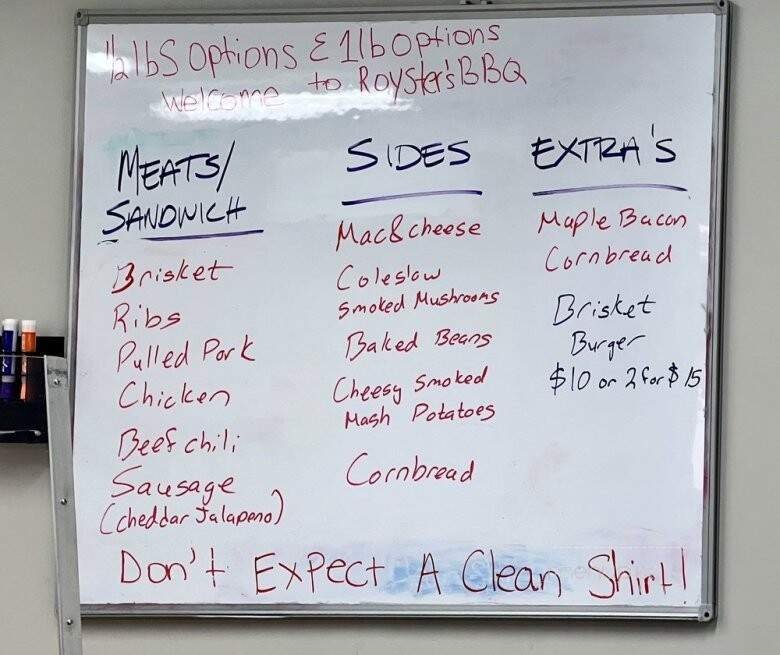 1/2 lbs Options & 1lb Options
Welcome to Royster's BBQ
MEATS/
SANDWICH
Brisket
Ribs
Pulled Pork
Chicken
Beef chili
Sausage
(cheddar Jalapeno)
SIDES
Mac&cheese
Coleslaw
Smoked Mushrooms
Baked Beans
Cheesy Smoked
Mash Potatoes
Cornbread
EXTRA'S
Maple Bacon
Cornbread
Brisket
Burger
$10 or 2 for $15
Don't Expect A Clean Shirt!